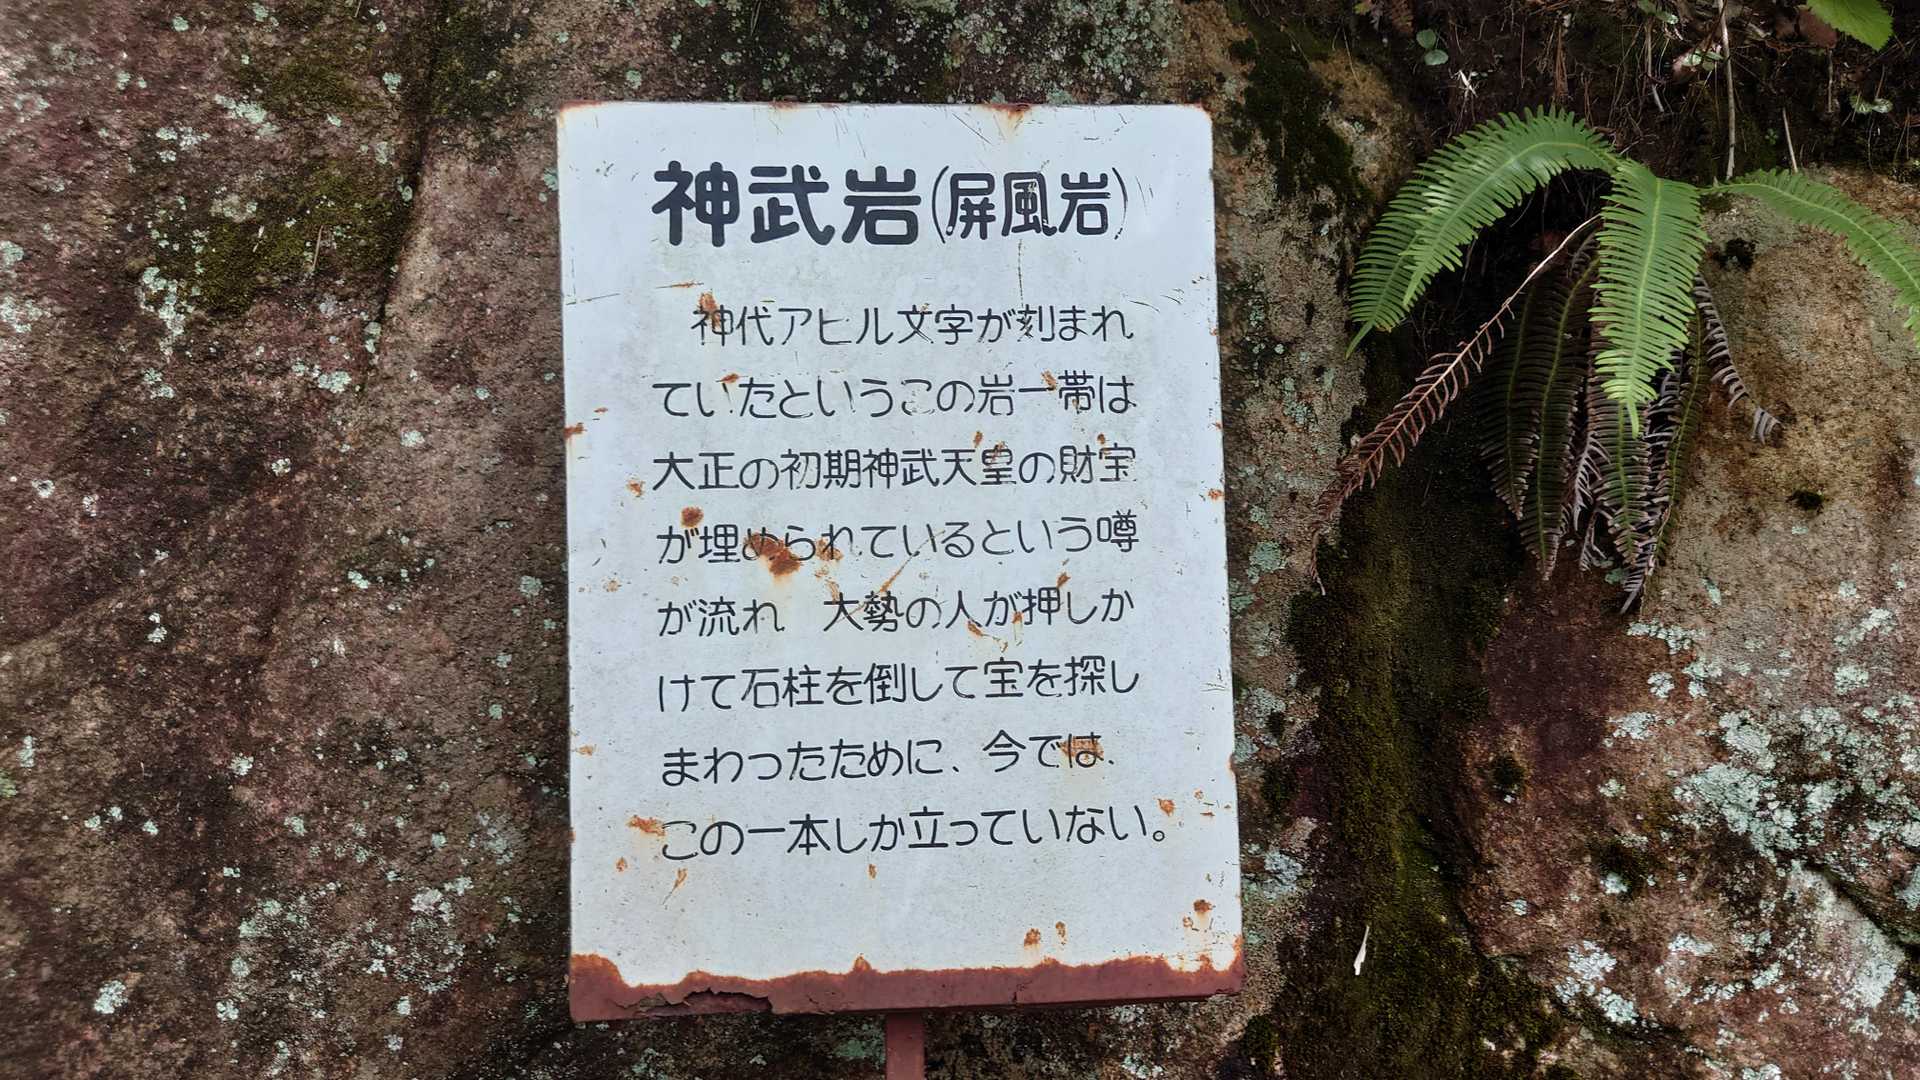 神武岩(屏風岩)
神代アヒル文字が刻まれ
ていたというこの岩一帯は
大正の初期神武天皇の財宝
が埋められているという噂
が流れ　大勢の人が押しか
けて石柱を倒して宝を探し
まわったために、今では、
この一本しか立っていない。